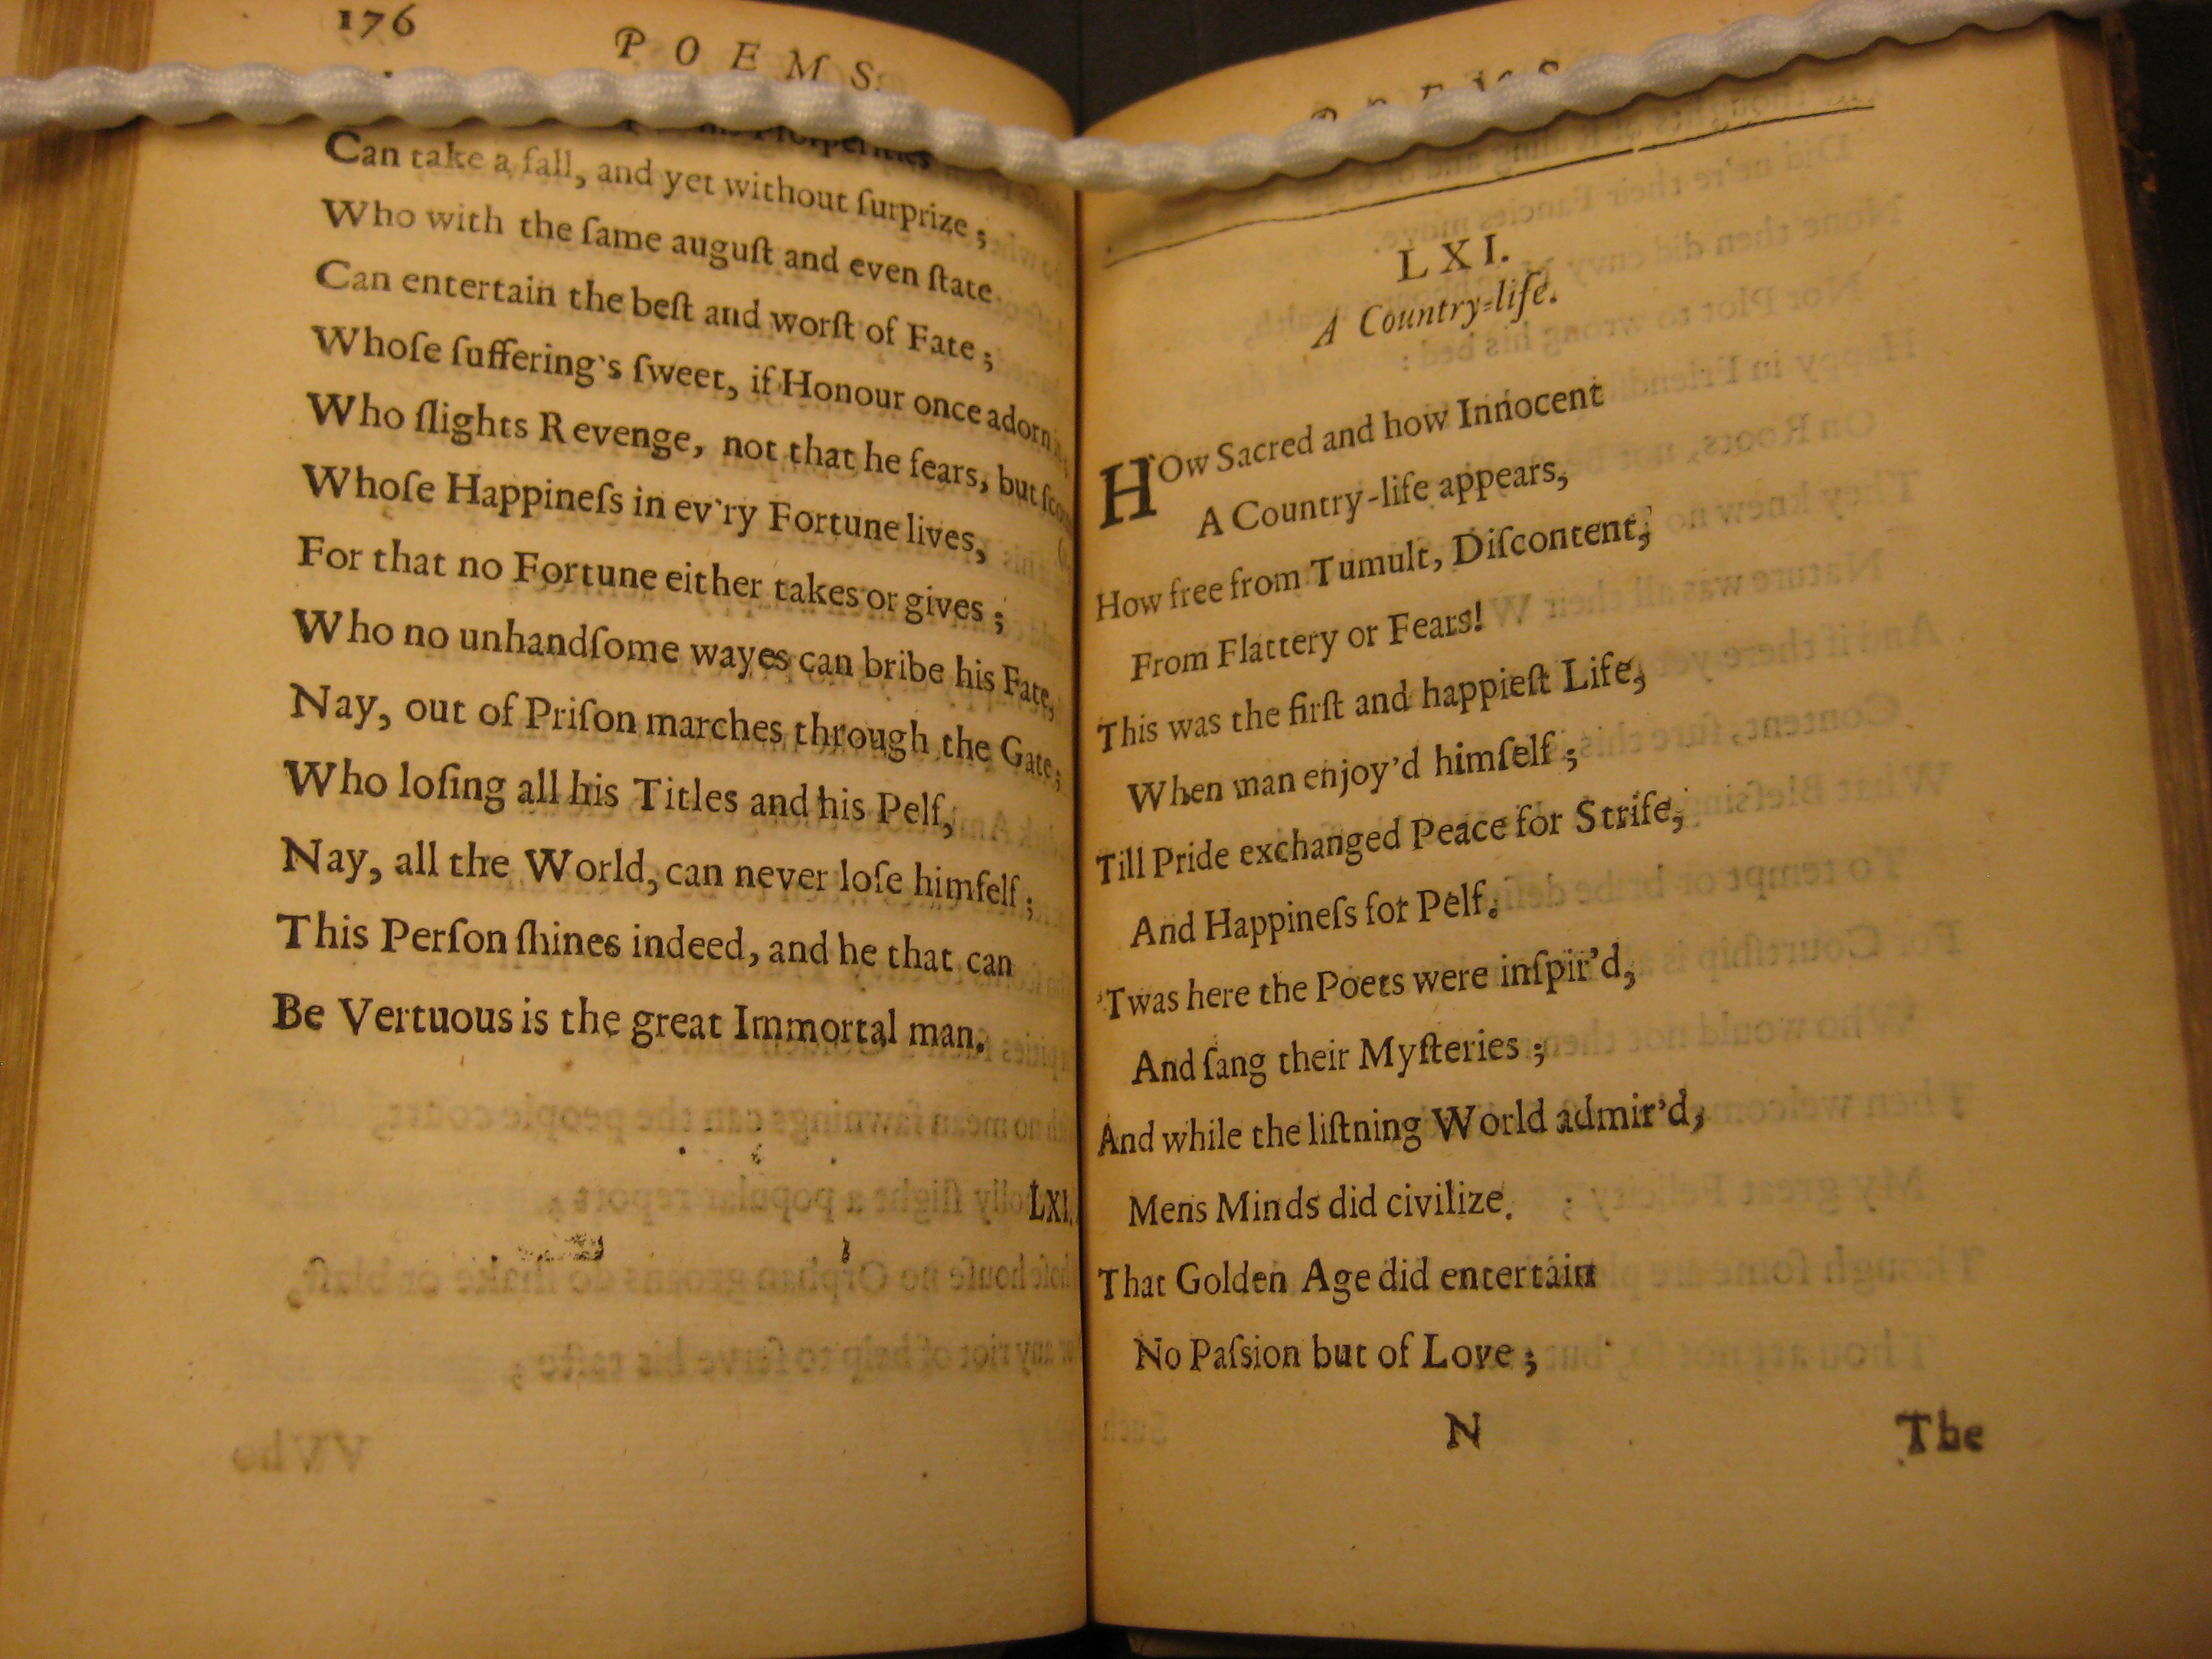 176
POEMS.
Prosperities
Can take a fall, and yet without ſurprize;
Who with the ſame auguſt and even ſtate
Can entertain the beſt and worſt of Fate;
Whoſe ſuffering's ſweet, if Honour once adorn
Who ſlights Revenge, not that he fears, but
Whoſe Happineſs in ev'ry Fortune lives,
For that no Fortune either takes or gives;
Who no unhandſome wayes can bribe his Fate,
Nay, out of Priſon marches through the Gate;
Who loſing all his Titles and his Pelf,
Nay, all the World, can never loſe himſelf;
This Perſon ſhines indeed, and he that can
Be Vertuous is the great Immortal man.
LXI.
LXI.
A Country-life.
HOw Sacred and how Innocent
A Country-life appears,
How free from Tumult, Diſcontent,
From Flattery or Fears!
This was the firſt and happieſt Life,
When man enjoy'd himſelf;
Till Pride exchanged Peace for Strife,
And Happineſs for Pelf.
'Twas here the Poets were inſpir'd,
And ſang their Myſteries;
And while the liſtning World admir'd,
Mens Minds did civilize.
That Golden Age did entertain
No Paſsion but of Love;
N
The